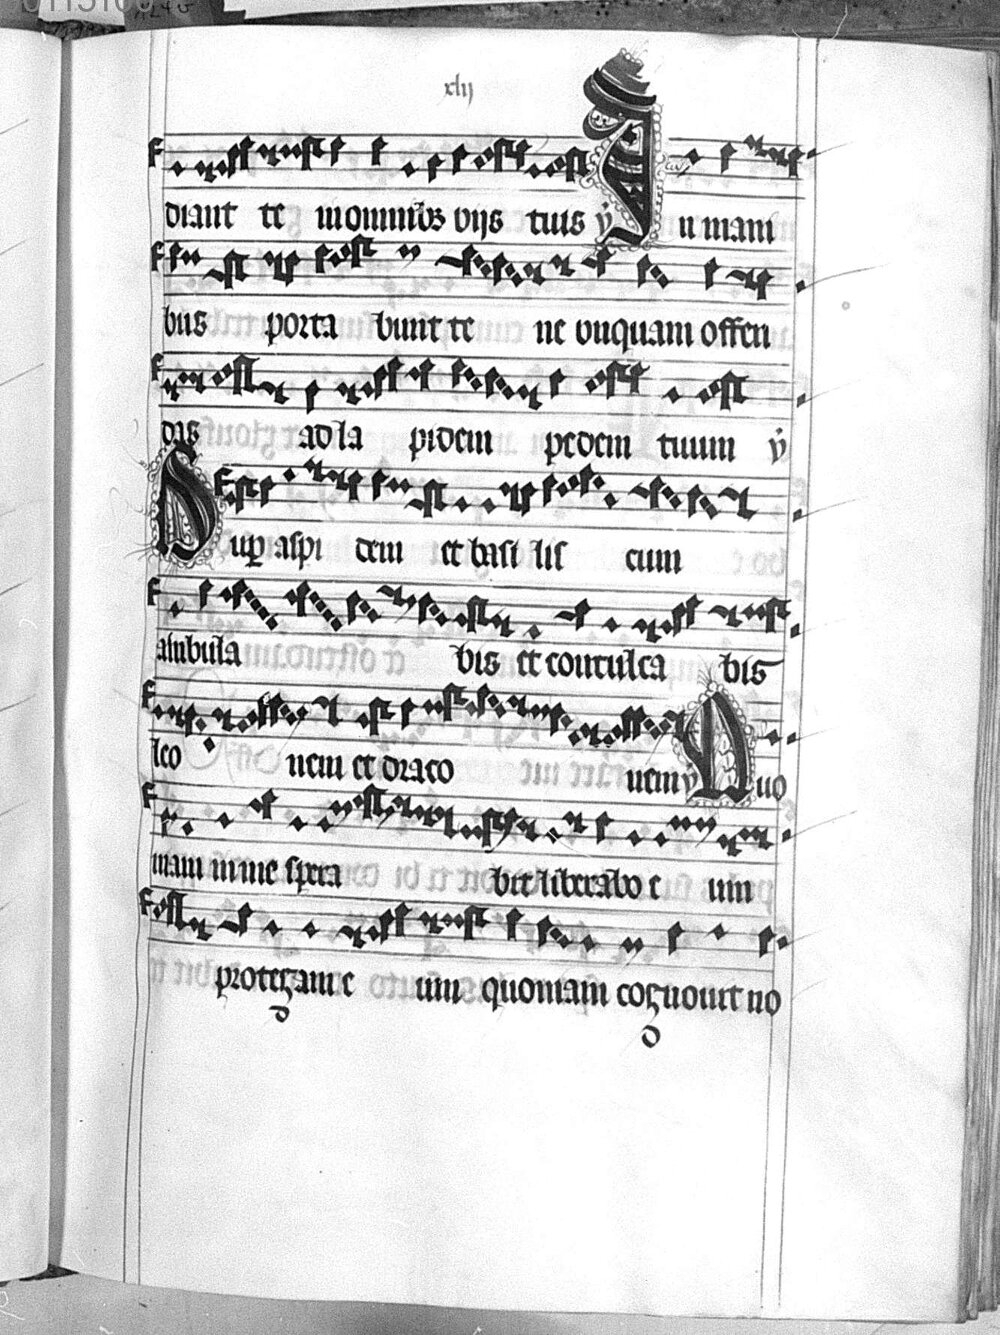 xlij
diant te in omnibus viis tuis ℣ In mani
bus porta bunt te ne unquam offen
das ad la pidem pedem tuum ℣
Sup aspi dem et basi lis cum
ambula bis et conculca bis
leo nem et draco nem ℣ Quo
niam in me spera vit liberabo e um
protegam e um quoniam cognovit no